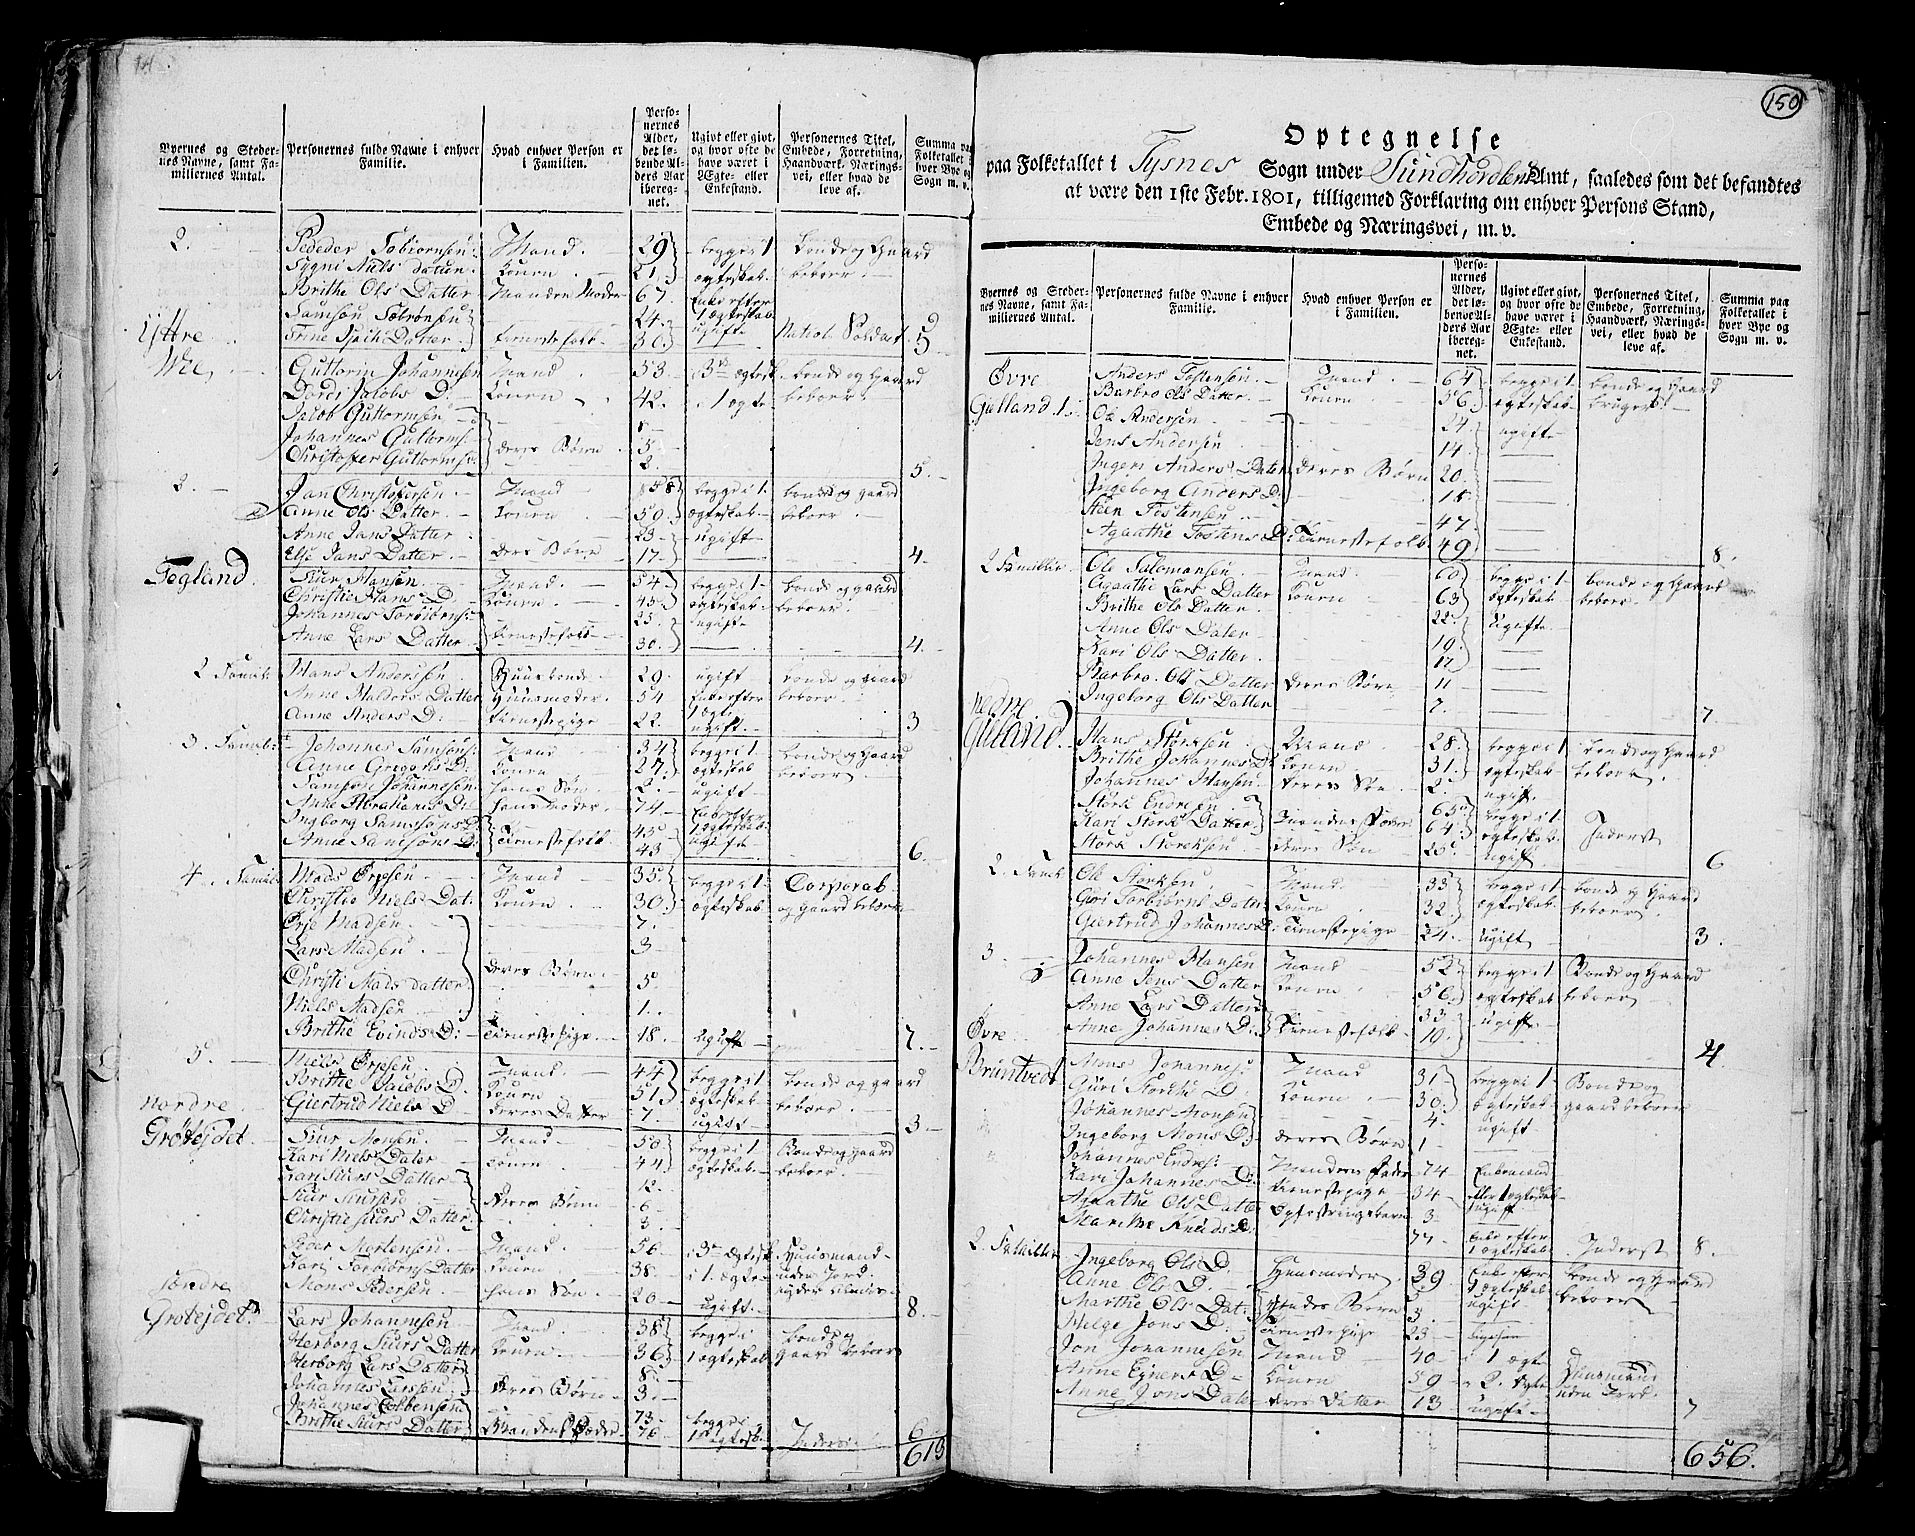 Byernes og Stedernes Navne, samt Familiernes Antal.
Personernes fulde Navne i enhver Familie.
Hvad enhver Person er i Familien.
Personernes Alder, det løbende Alders Aar iberegnet.
Ugivt eller givt, og hvor ofte de have været i Ægte- eller Enkestand.
Personernes Titel, Embede, Forretning, Haandværk, Næringsvei, eller hvad de leve af.
Summa paa Folketallet i hver Bye og Sogn m. v.
2. Pededer Tobiornsen Mand 29 begge i 1 bonde og Gaard
Sygni Niels datter Konen 21 ægteskab beboer
Brithe Ols Datter Mandens Moder 67 Enke efter
Samson Tobiönsen 24 1 ægteskab
Trine Datter tienestefolk 30 ugift National Soldat 5
Yttre
Guttorm Johannesen Mand 53 bonde og Gaard
Dordi Jacobs D: Konen 42 i 1 ægte beboer
Jacob Guttormsen 8
Johannes Guttorms: deres Børn 5
Christoffer Guttorms: 2 5
2. Jan Christofersen Mand 58 begge i 1 bonde og gaard
Anne Ols Datter Konen 59 ægteskab beboer
Anne Jans Datter 23 ugift
Else Jans Datter deres Børn 17 4
Tegland
Siur Hansen Mand 54 begge i 1 bonde og gaard
Christie Hans D. Konen 45 ægteskab beboer
Johannes Torbiörns: 25 ugift
Anne Lars Datter tienestefolk 30 4
2 Famili: Hans Andersen Huusbonde 29 ugift bonde og Gaard
Anne Halders Datter Huusmoder 54 Enke efter beboer
Anne Anders D: tienestepige 22 ugift 3
3. Famili: Johannes Samsons: Mand 34 begge i 1 bonde og Gaard
Anne Gregoris D. Konen 27 ægteskab beboer
Samson Johannesen hans Søn 2 ugift
Anne Abrahams D: hans Moder 74
Ingborg Samsons D: 45
Anne Samsons D: Tienestefolk 43 ugift 6
4. Famili: Mads Örjesen Mand 35 begge i 1 Corporal
Christie Niels Dat. Konen 30 ægteskab og gaard beboer
Örje Madsen 7
Lars Madsen 3
Christi Mads datter deres Børn 5
Niels Madsen 1
Brithe Evinds D: Tienestepige 18 ugift 7
5. Niels Örjesen Mand 44 begge i 1 bonde og gaard
Brithe Jacobs D. Konen 51 ægteskab beboer
Giertrud Niels D deres Datter 7 ugift 3
nordre
Siur Monsen Mand 50 begge i 1 Bonde og gaard
Kari Niels Dater Konen 44 ægteskab beboer
Kari Siurs Datter 12
Siur Siursen deres Børn 6
Christie Siurs Datter 3
Peder Mortensen Mand 56 i 3die ægtesk. Huusmand
Kari Torbiörns Datter Konen 38 i 1. ægte uden Jord
Mons Pedersen hans Søn 20 ugift 8
søndre
Lars Johannesen Mand 38 begge i bonde og
Herborg Siurs Datter Konen 36 1 ægteskab gaard beboer
Herborg Lars Datter 8
Johannes Larssen deres Børn 3
Johannes Colbensen 73 begge i
Brithe Siurs Datter Mandens Forældre 76 1 ægtesk. Inderst 6
619
150
Optegnelse
paa Folketallet i Tysnes Sogn under Sundhordlens Amt, saaledes som det befandtes
at være den 1ste Febr. 1801, tilligemed Forklaring om enhver Persons Stand,
Embede og Næringsvei, m. v.
Byernes og Stedernes Navne, samt Familiernes Antal.
Personernes fulde Navne i enhver Familie.
Hvad enhver Person er i Familien.
Personernes Alder, det løbende Alders Aar iberegnet.
Ugivt eller givt, og hvor ofte de have været i Ægte- eller Enkestand.
Personernes Titel, Embede, Forretning, Haandværk, Næringsvei, eller hvad de leve af.
Summa paa Folketallet i hver Bye og Sogn m. v.
Øvre Anders Tostensen Mand 64 begge i 1 bonde og gaard
Gulland 1. Barbro Ols Datter Konen 56 ægteskab bruger
Ole Andersen 24 ugift
Jens Andersen 14
Ingeri Anders Dater deres Børn 20
Ingeborg Anders D: 18
Steen Tostensen 47
Agaathe Tostens D: Tienestefolk 49 8.
2 Familie Ole Salomonsen Mand 60 begge i 1 bonde og Gaard
Agaathe Lars Datter Konen 63 ægteskab beboer
Brithe Ols Datter 22 ugift
Anne Ols Dater 19
Kari Ols Datter 17
Barbro Ols Datter deres Børn 11
Ingeborg Ols Datter 7 7.
nedre
Gulland
Hans Störksen Mand 28 begge i 1 bonde og Gaard
Brithe Johannes D. Konen 31 ægteskab beboer
Johannes Hansen deres Søn 2 ugift
Störk Endresen 65 begge i 1
Kari Störks Datter 64 ægteskab Inderst
Störk Störksen deres Søn 25 ugift 6
2. Famili Ole Störksen Mand 33 begge i 1 bonde og Gaard
Guri Torbiörns Dater Konen 32 ægteskab beboer
Giertrud Johannes D: Tienestepige 24 ugift 3
3. Johannes Hansen Mand 52 begge i 1 Bonde og Gaard
Anne Jens Datter Konen 56 ægteskab beboer
Anne Lars Datter 33 ugift
Anne Johannes D: Tienestefolk 19 4
Øvre
Bruntvedt
Mons Johannes: Mand 31 begge i 1 Bonde og
Guri Störks D. Konen 30 ægteskab gaard beboer
Johannes Monsen 4 ugift
Ingeborg Mons D: deres Børn 1
Johannes Endres: Mandens Fader 74 Enkemand
Kari Johannes D: tienestepige 34 efter 1 ægteskab
Agaathe Ols Datter Opfostringsbarn 3 ugift
Marithe Knuds D: 77 Enke efter 1 ægteskab Inderst 8.
2. Familie Ingeborg Ols D. Huusmoder 39 Enke efter bonde og Gaard
Anne Ols D. 5 1 ægteskab beboer
Marthe Ols Dat. hendes Børn 3 ugift
Helge Jons D: Tienestepige 23
Jon Johannesen Mand 40 i 1 ægte Huusmand
Anne Eyners D Konen 59 2. ægte uden Jord
Anne Jons Dater deres Datter 13 ugift 7
656.